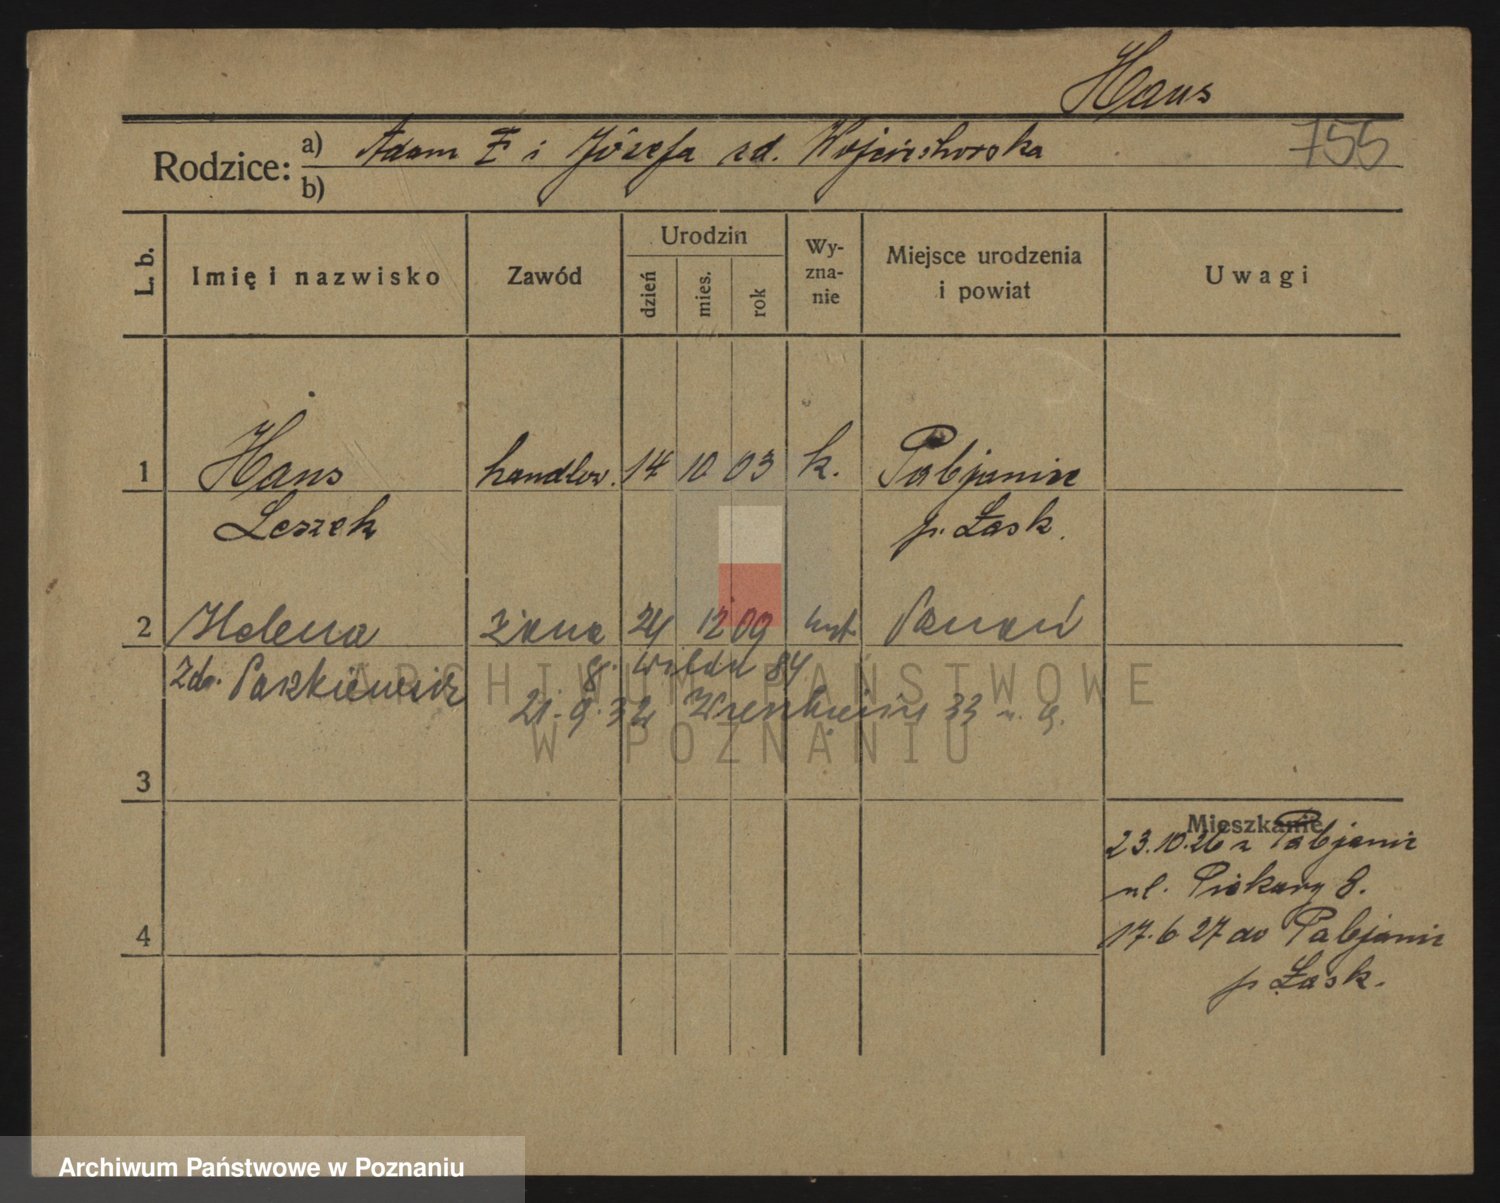 Hans
Rodzice: a) Adam F i Józefa zd. Wojciechowska
755
b)
L. b.
Imię i nazwisko
Zawód
Urodzin
dzień
mies.
rok
Wy-
zna-
nie
Miejsce urodzenia
i powiat
Uwagi
1 Hans handlow. 14 10 03 k. Pabjanic
Leszek p. Łask.
2 Helena żona 24 12 09 Poznań
zdn. Paszkiewicz
8. 84
21.9.32 33
3
Mieszkanie
23.10.26 z Pabjanic
ul. Piekary 8.
17.6 27 do Pabjanic
p Łask.
4
ARCHIWUM PAŃSTWOWE
W POZNANIU
Archiwum Państwowe w Poznaniu